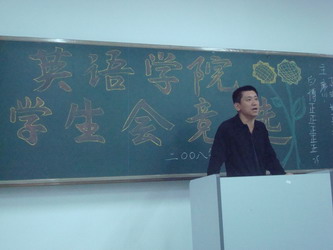 英语学院
学生会竞选
二00八